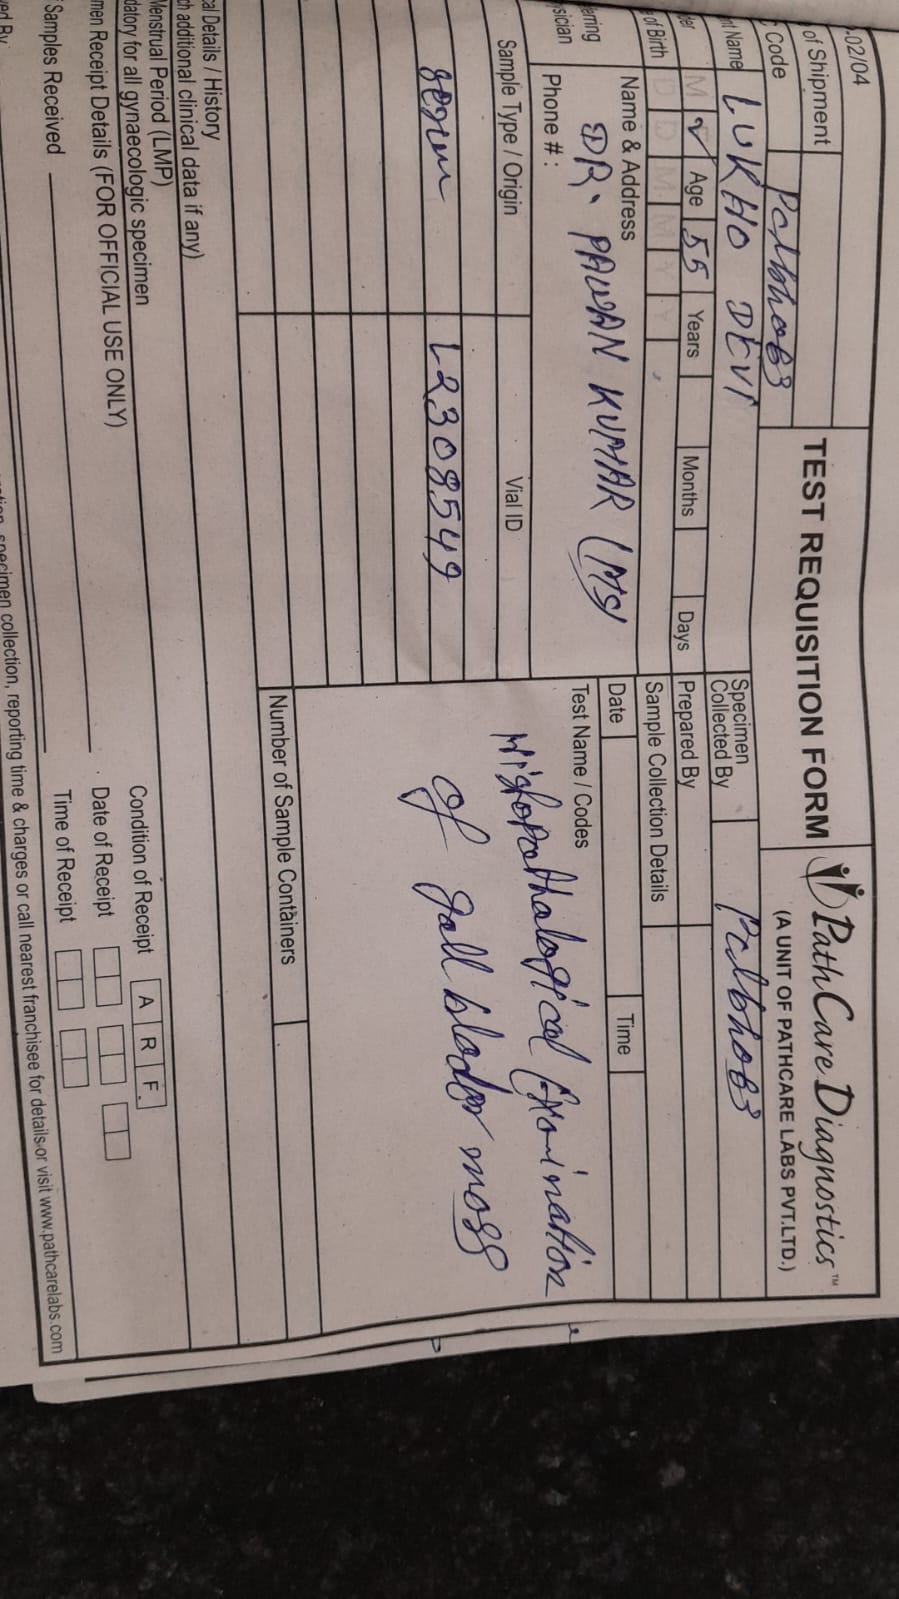 .02/04
TEST REQUISITION FORM
PathCare Diagnostics™
(A UNIT OF PATHCARE LABS PVT.LTD.)
of Shipment
Code Pclbh063
nt Name LUKHO DEVI
Specimen Collected By Pclbh063
M Age 55 Years Months Days
Prepared By
of Birth D D M M Y Y
Sample Collection Details
Name & Address
DR. PAWAN KUMAR (MS)
Date Time
Phone # :
Test Name / Codes
Histopathological Examination
of gall bladder mass
Sample Type / Origin Vial ID
L2308549
Number of Sample Containers
al Details / History
ch additional clinical data if any)
Menstrual Period (LMP)
datory for all gynaecologic specimen
men Receipt Details (FOR OFFICIAL USE ONLY)
Condition of Receipt A R F.
Date of Receipt
Samples Received
Time of Receipt
specimen collection, reporting time & charges or call nearest franchisee for details or visit www.pathcarelabs.com